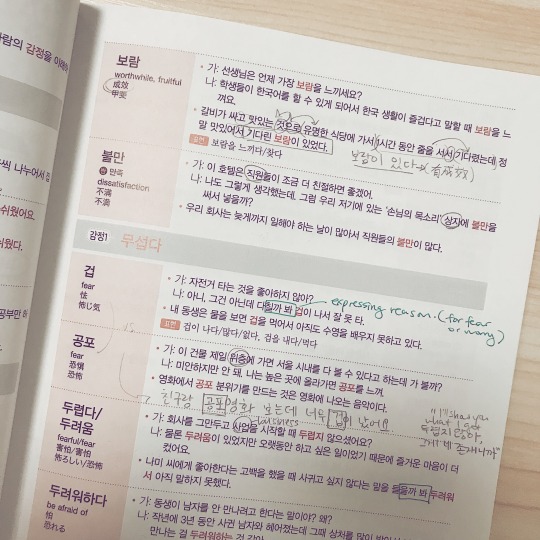 사람의 감정을 이해하
씩 나누어서
쉬웠어요.
쉬웠다.
공부만
보람
worthwhile, fruitful
成效
가: 선생님은 언제 가장 보람을 느끼세요?
나: 학생들이 한국어를 할 수 있게 되어서 한국 생활이 즐겁다고 말할 때 보람을 느
껴요.
갈비가 싸고 맛있는 것으로 유명한 식당에 가서 1시간 동안 줄을 서서 기다렸는데 정
말 맛있어서 기다린 보람이 있었다.
표현 보람을 느끼다/찾다
보람이 있다
불만
반 만족
dissatisfaction
不满
不満
가: 이 호텔은 직원들이 조금 더 친절하면 좋겠어.
나: 나도 그렇게 생각했는데. 그럼 우리 저기에 있는 '손님의 목소리' 상자에 불만을
써서 넣을까?
우리 회사는 늦게까지 일해야 하는 날이 많아서 직원들의 불만이 많다.
감정1 무섭다
겁
fear
怯
怖じ気
가: 자전거 타는 것을 좋아하지 않아?
나: 아니, 그건 아닌데 다칠까 봐 겁이 나서 잘 못 타.
expressing reason. (for fear
or worry)
내 동생은 물을 보면 겁을 먹어서 아직도 수영을 배우지 못하고 있다.
표현 겁이 나다/많다/없다, 겁을 내다/먹다
공포
fear
恐惧
恐怖
가: 이 건물 제일 위층에 가면 서울 시내를 다 볼 수 있다고 하는데 가 볼까?
나: 미안하지만 안 돼. 나는 높은 곳에 올라가면 공포를 느껴.
영화에서 공포 분위기를 만드는 것은 영화에 나오는 음악이다.
친구랑 공포영화 보는데 너무 겁이 났어요
business
두렵다/
두려움
fearful/fear
害怕/害怕
怖ろしい/恐怖
가: 회사를 그만두고 사업을 시작할 때 두렵지 않으셨어요?
나: 물론 두려움이 있었지만 오랫동안 하고 싶은 일이었기 때문에 즐거운 마음이 더
컸어요.
나미 씨에게 좋아한다는 고백을 했을 때 사귀고 싶지 않다는 말을 들을까 봐 두려워
서 아직 말하지 못했다.
what I got
두렵지 않아,
두려워하다
be afraid of
怕
恐れる
가: 동생이 남자를 안 만나려고 한다는 말이야? 왜?
나: 작년에 3년 동안 사귄 남자와 헤어졌는데 그때 상처를 많이
만나는 걸 두려워하는 것 같아.